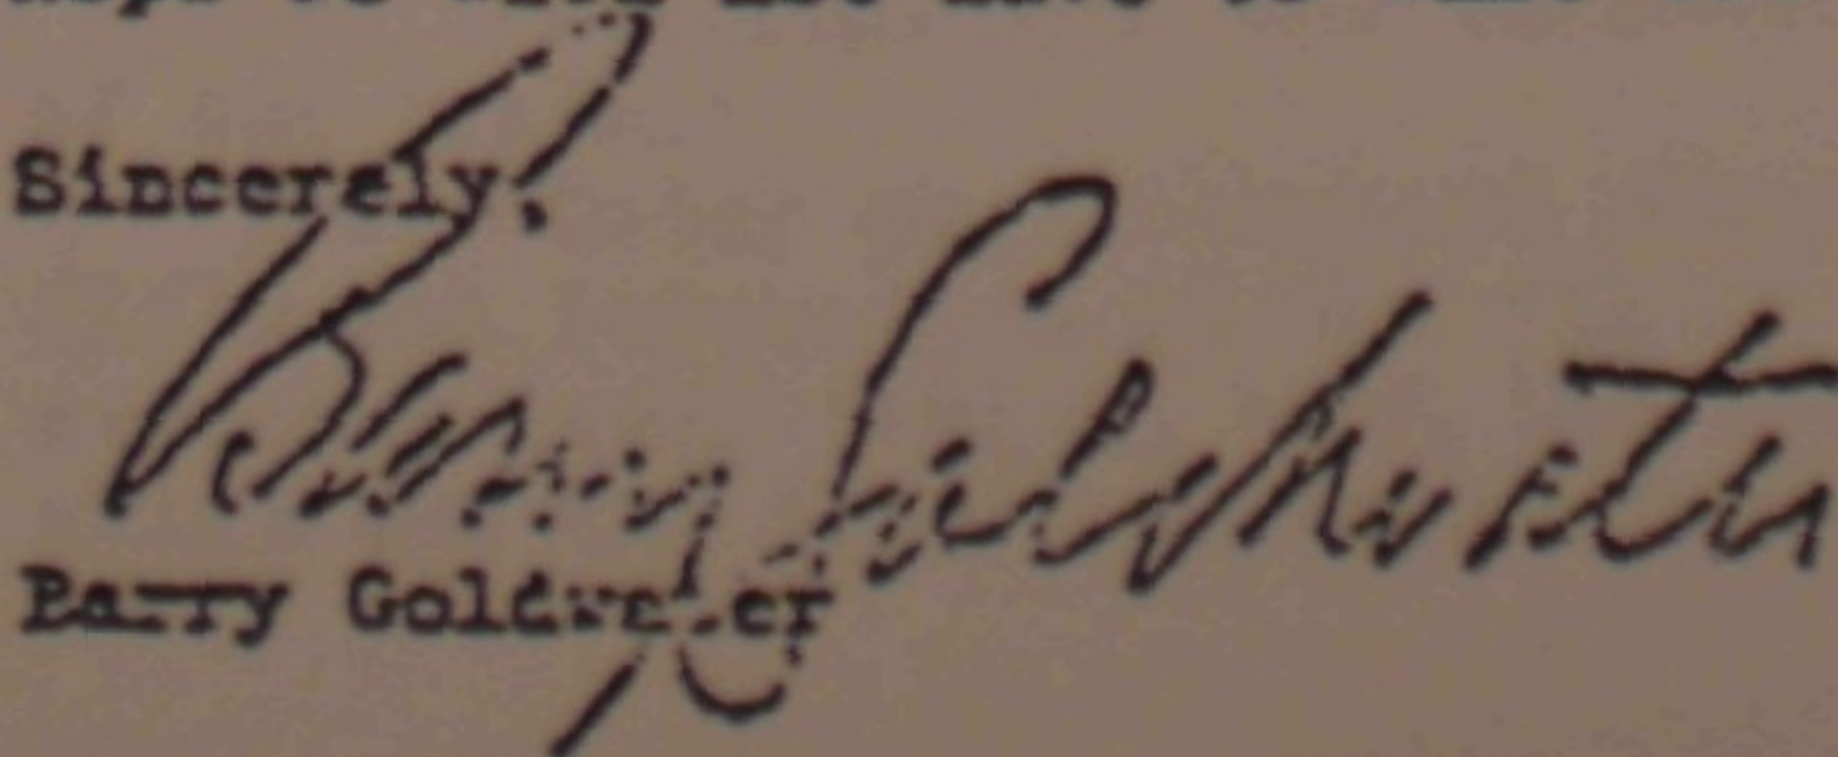 Sincerely,
Barry Goldwater
Barry Goldwater